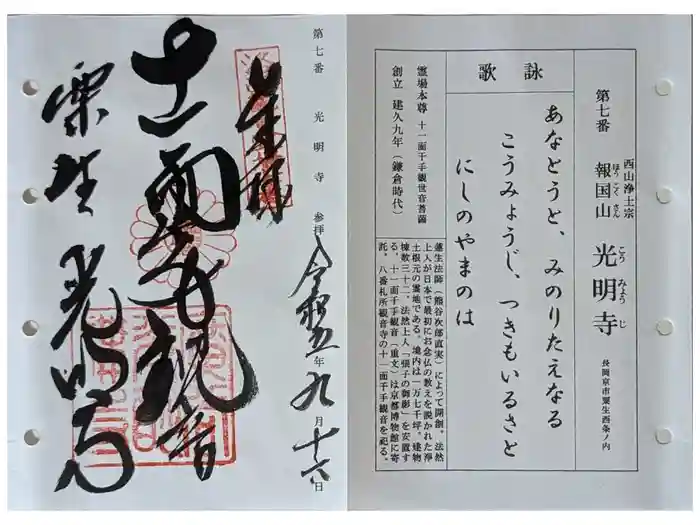 西山浄土宗
第七番 報国山 光明寺
ほうこくさん
こうみょうじ
長岡京市粟生西条ノ内
詠歌
あなとうと、みのりたえなる
こうみょうじ、つきもいるさと
にしのやまのは
霊場本尊 十一面千手観世音菩薩
創立 建久九年(鎌倉時代)
蓮生法師(熊谷次郎直実)によって開創。法然
上人が日本で最初にお念仏の教えを説かれた浄
土根元の霊地である。境内は一万七千坪。建物
棟数三十二。法然上人「張子の御影」を安置す
る。十一面千手観音(重文)は京都博物館に寄
託。八番札所観音寺の十一面千手観音を祀る。
第七番 光明寺 参拝
令和五年九月十六日
十一面千手観音
粟生光明寺